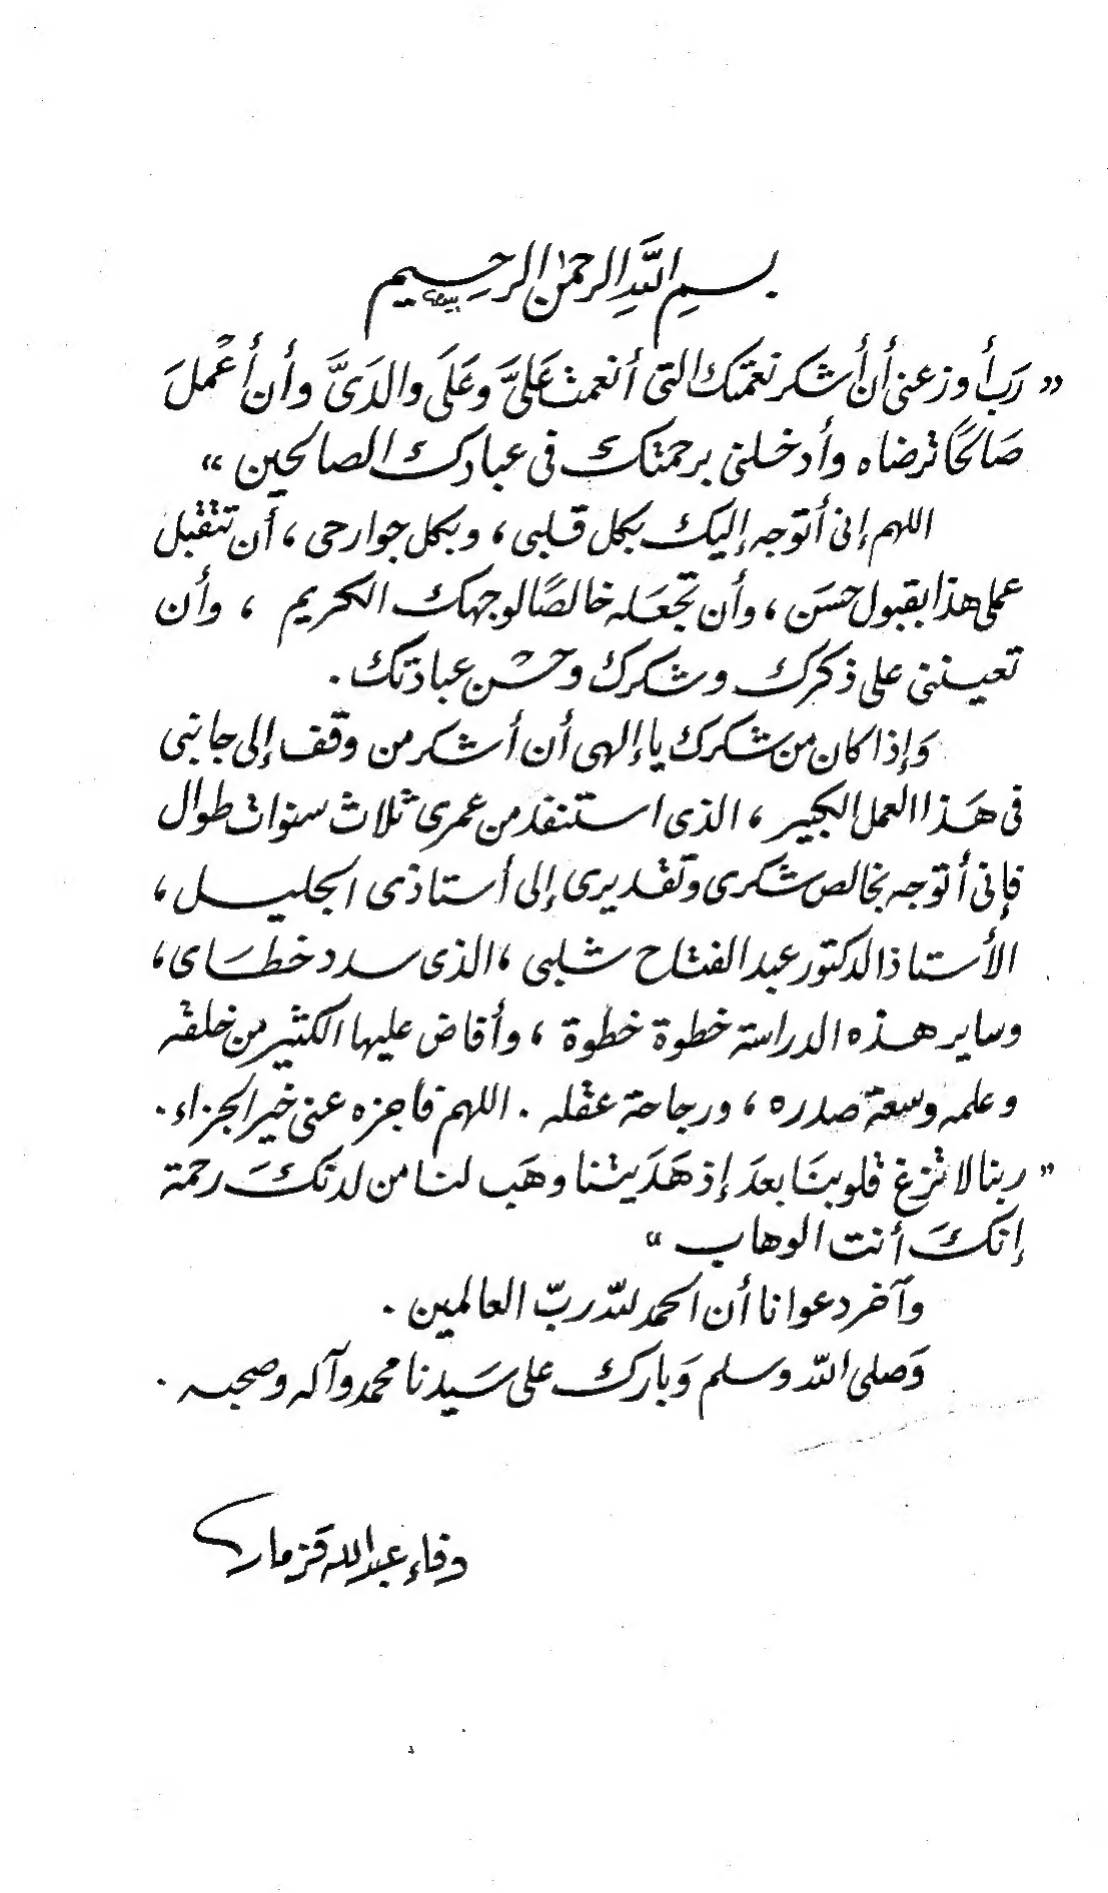 بسم الله الرحمن الرحيم
« رَب أوزعنى أن أشكر نعمتك التى أنعمت عَلىَّ وَعَلَى والدَىَّ وأن أعْملَ
صَالحًا ترضاه وأدخلنى برحمتك فى عبادك الصالحين »
اللهم إنى أتوجه إليك بكل قلبى ، وبكل جوارحى ، أن تتقبل
عملى هذا بقبول حسَن ، وأن تجعَله خالصًا لوجهك الكريم ، وأن
تعيننى على ذكرك وشكرك وحسْن عبادتك .
وَإذا كان من شكرك يا إلهى أن أشكر من وقف إلى جانبى
فى هَذا العمل الكبير ، الذى استنفذ من عمرى ثلاث سنوات طوال
فإنى أتوجه بخالص شكرى وتقديرى إلى أستاذى الجليل ،
الأستاذ الدكتور عبد الفتاح شلبى ، الذى سدد خطَاى ،
وساير هذه الدراسة خطوة خطوة ، وأفاض عليها الكثير من خلقه
وعلمه وسعة صدره ، ورجاحة عقله . اللهم فاجزه عنى خير الجزاء .
« ربنا لا تزغ قلوبنَا بعدَ إذ هَدَيتنا وهَب لنا من لدنكَ رحمة
إنكَ أنت الوهاب »
وآخر دعوانا أن الحمد لله ربّ العالمين .
وَصلى الله وسلم وَبارك على سَيدنا محمد وآله وصحبه .
وفاء عبدالله قزمار